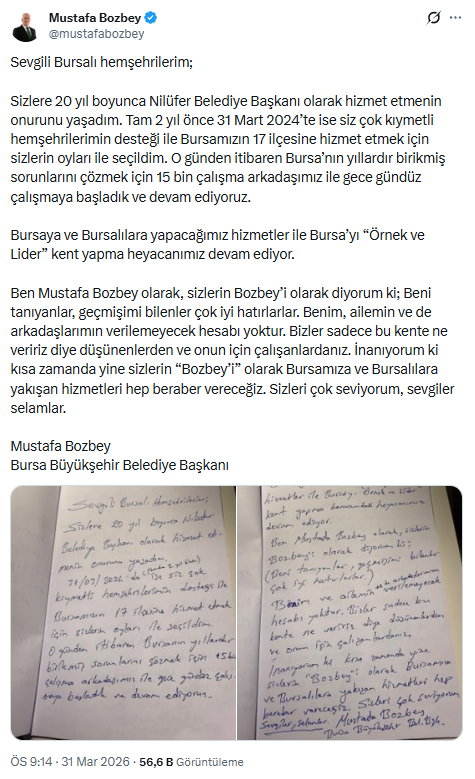 Mustafa Bozbey
@mustafabozbey
Sevgili Bursalı hemşehrilerim;
Sizlere 20 yıl boyunca Nilüfer Belediye Başkanı olarak hizmet etmenin
onurunu yaşadım. Tam 2 yıl önce 31 Mart 2024’te ise siz çok kıymetli
hemşehrilerimin desteği ile Bursamızın 17 ilçesine hizmet etmek için
sizlerin oyları ile seçildim. O günden itibaren Bursa’nın yıllardır birikmiş
sorunlarını çözmek için 15 bin çalışma arkadaşımız ile gece gündüz
çalışmaya başladık ve devam ediyoruz.
Bursaya ve Bursalılara yapacağımız hizmetler ile Bursa’yı “Örnek ve
Lider” kent yapma heyacanımız devam ediyor.
Ben Mustafa Bozbey olarak, sizlerin Bozbey’i olarak diyorum ki; Beni
tanıyanlar, geçmişimi bilenler çok iyi hatırlarlar. Benim, ailemin ve de
arkadaşlarımın verilemeyecek hesabı yoktur. Bizler sadece bu kente ne
veririz diye düşünenlerden ve onun için çalışanlardanız. İnanıyorum ki
kısa zamanda yine sizlerin “Bozbey’i” olarak Bursamıza ve Bursalılara
yakışan hizmetleri hep beraber vereceğiz. Sizleri çok seviyorum, sevgiler
selamlar.
Mustafa Bozbey
Bursa Büyükşehir Belediye Başkanı
Sevgili Bursalı Hemşehrilerim;
Sizlere 20 yıl boyunca Nilüfer
Belediye Başkanı olarak hizmet et-
menin onurunu yaşadım.
31/03/2024'da ise siz çok
kıymetli hemşehrilerimin desteği ile
Bursamızın 17 ilçesine hizmet etmek
için sizlerin oyları ile seçildim.
O günden itibaren Bursanın yıllardır
birikmiş sorunlarını çözmek için 15 bin
çalışma arkadaşımız ile gece gündüz çalış-
maya başladık ve devam ediyoruz.
hizmetler ile Bursayı "Örnek ve Lider"
kent yapma heyecanımız
devam ediyor.
Ben Mustafa Bozbey olarak, sizlerin
Bozbey'i olarak diyorum ki;
(Beni tanıyanlar, geçmişimi bilenler
çok iyi hatırlarlar.)
Benim ve ailemin ve arkadaşlarımın verilemeyecek
hesabı yoktur. Bizler sadece bu
kente ne veririz diye düşünenlerden
ve onun için çalışanlardanız.
İnanıyorum ki kısa zamanda yine
sizlerin "Bozbey'i" olarak Bursamıza
ve Bursalılara yakışan hizmetleri hep
beraber vereceğiz. Sizleri çok seviyorum
Sevgiler, selamlar. Mustafa Bozbey
Bursa Büyükşehir Bel. Bşk.
ÖS 9:14 · 31 Mar 2026 · 56,6 B Görüntüleme